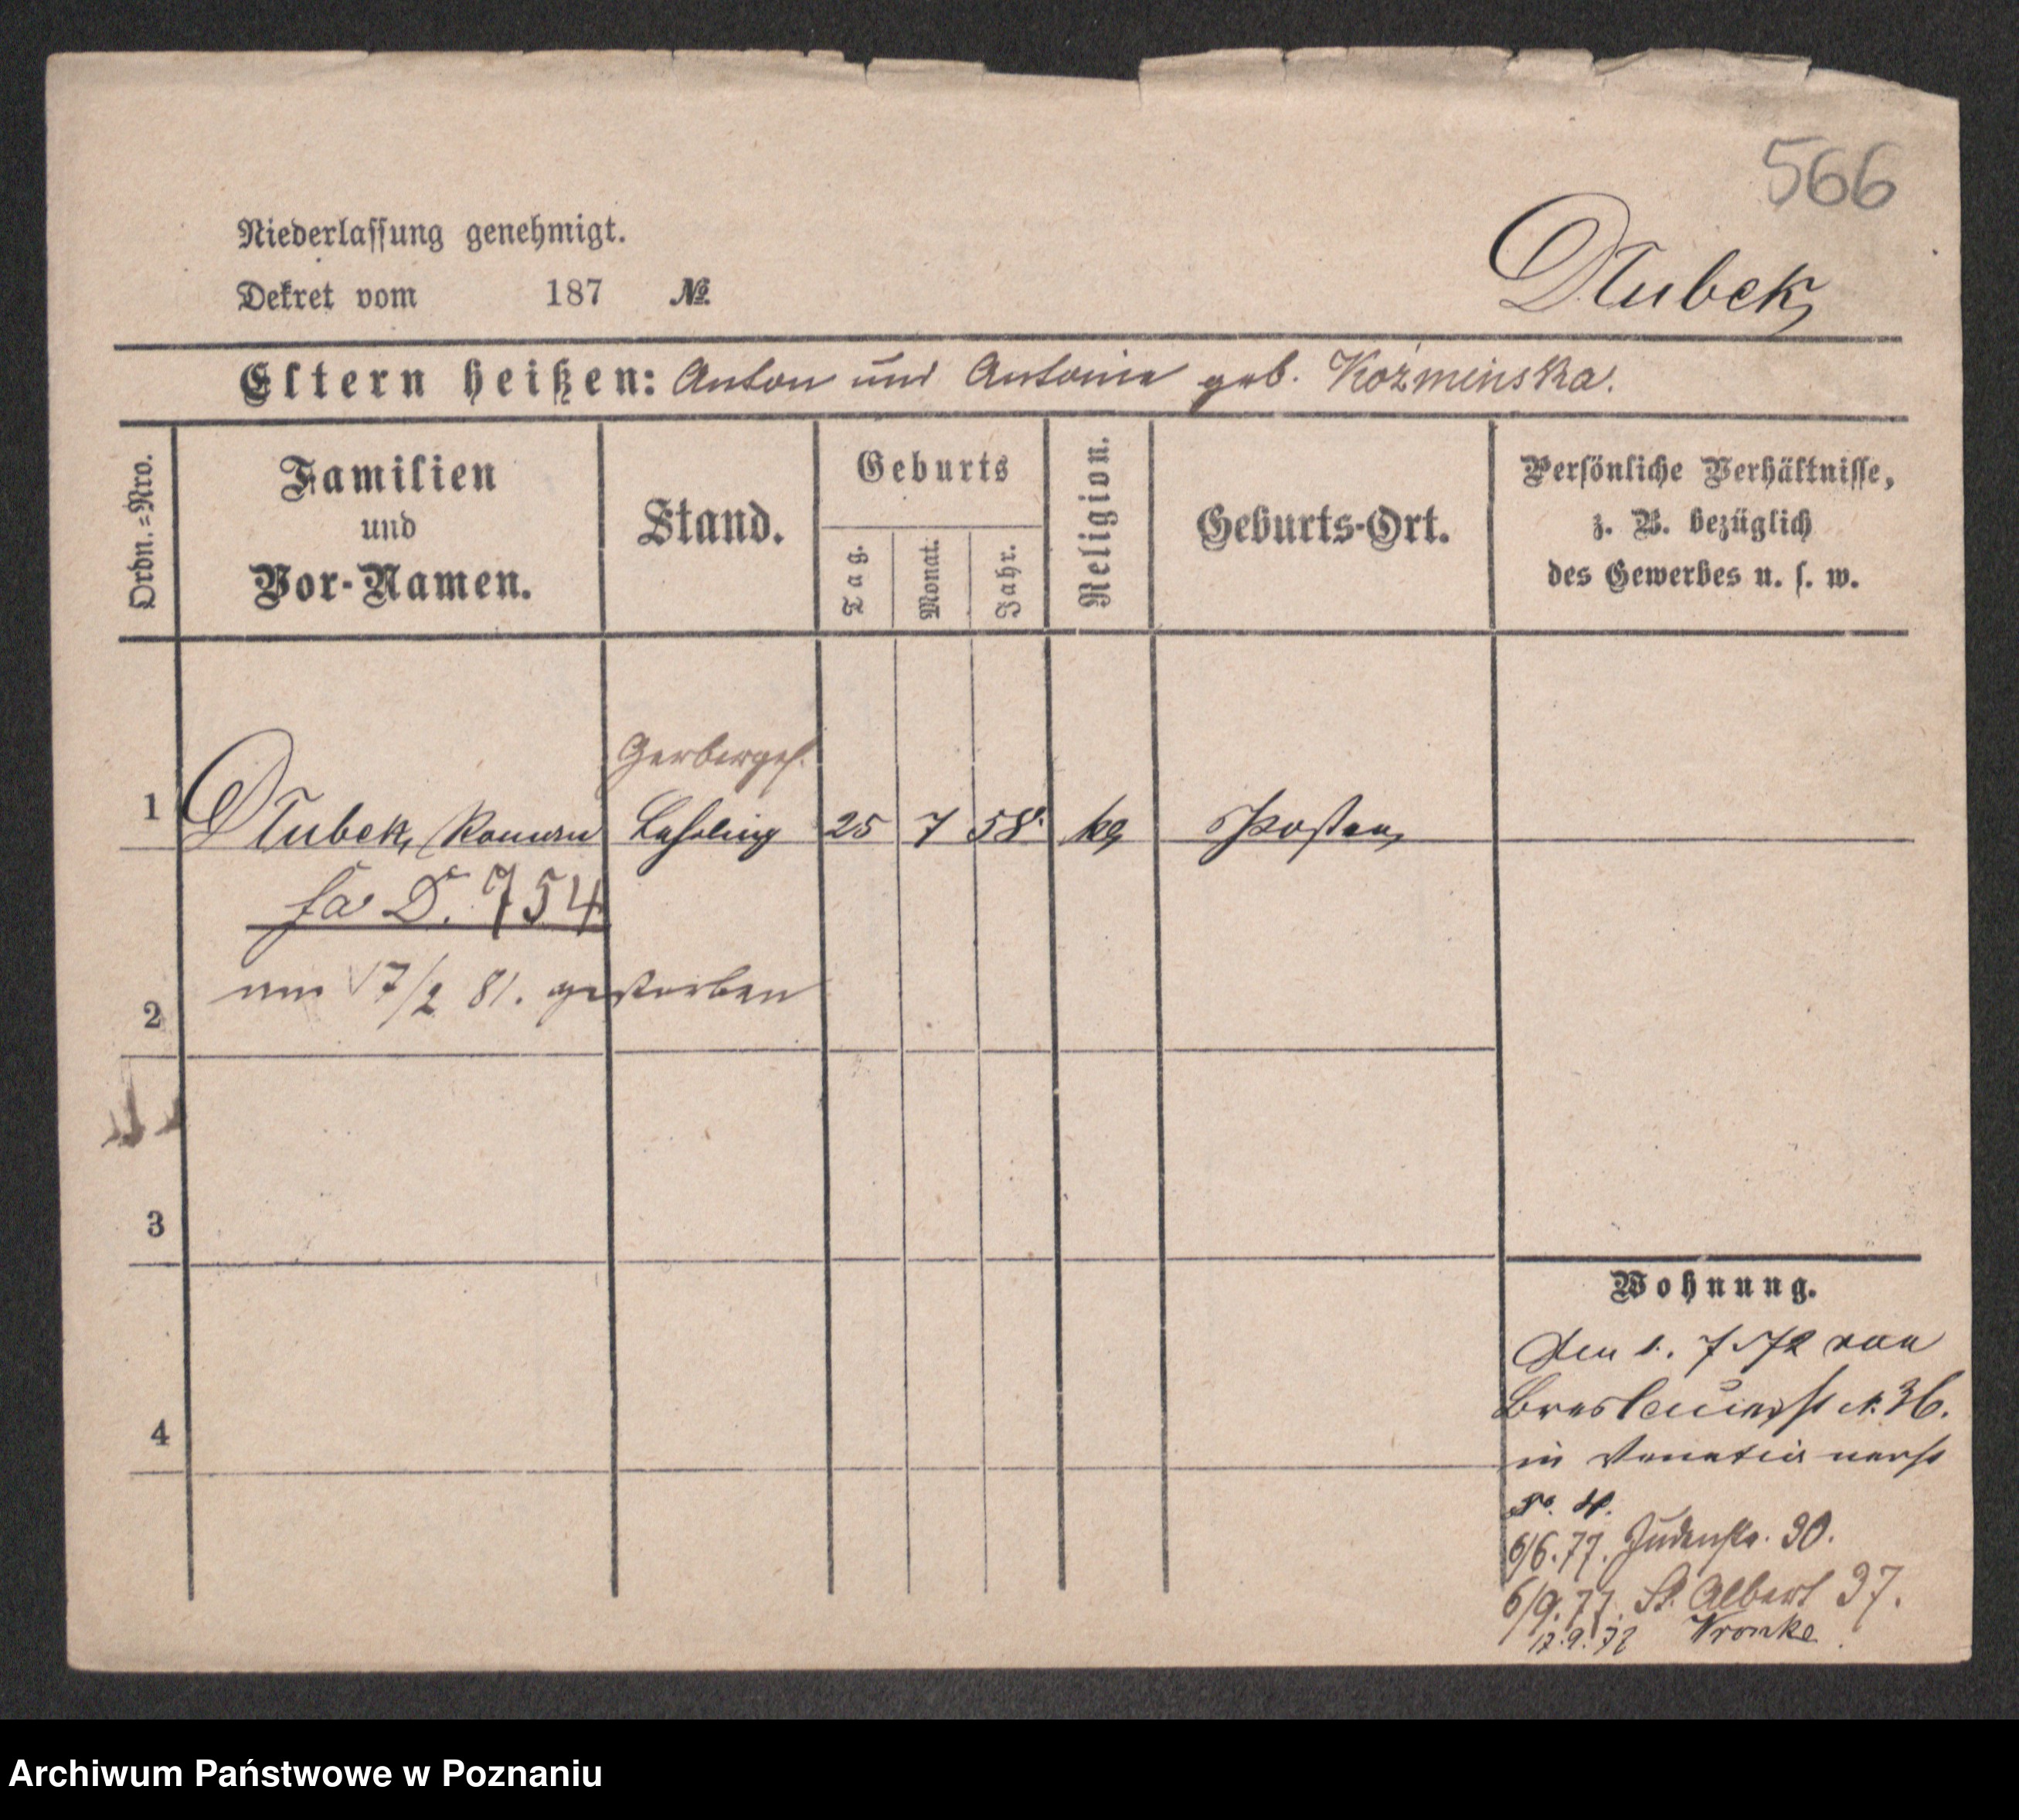 566
Niederlassung genehmigt.
Dekret vom 187 №
Dłubek
Eltern heißen: Anton und Antonie geb. Koźminska.
Ordn.=Nro.
Familien
und
Vor-Namen.
Stand.
Geburts
Tag.
Monat.
Jahr.
Religion.
Geburts-Ort.
Persönliche Verhältnisse,
z. B. bezüglich
des Gewerbes u. s. w.
Gerberges.
1 Dłubek, Roman Lehrling 25 7 58. kg Posen
D. 754
am 17/2 81. gestorben
2
3
4
Wohnung.
Den 1. 7 72 von
Breslauerst N. 36.
in Venetianerst
No. 4.
6/6. 77. Judenstr. 30.
6/9. 77. St. Albert 37.
12. 9. 77 Wronke
Archiwum Państwowe w Poznaniu